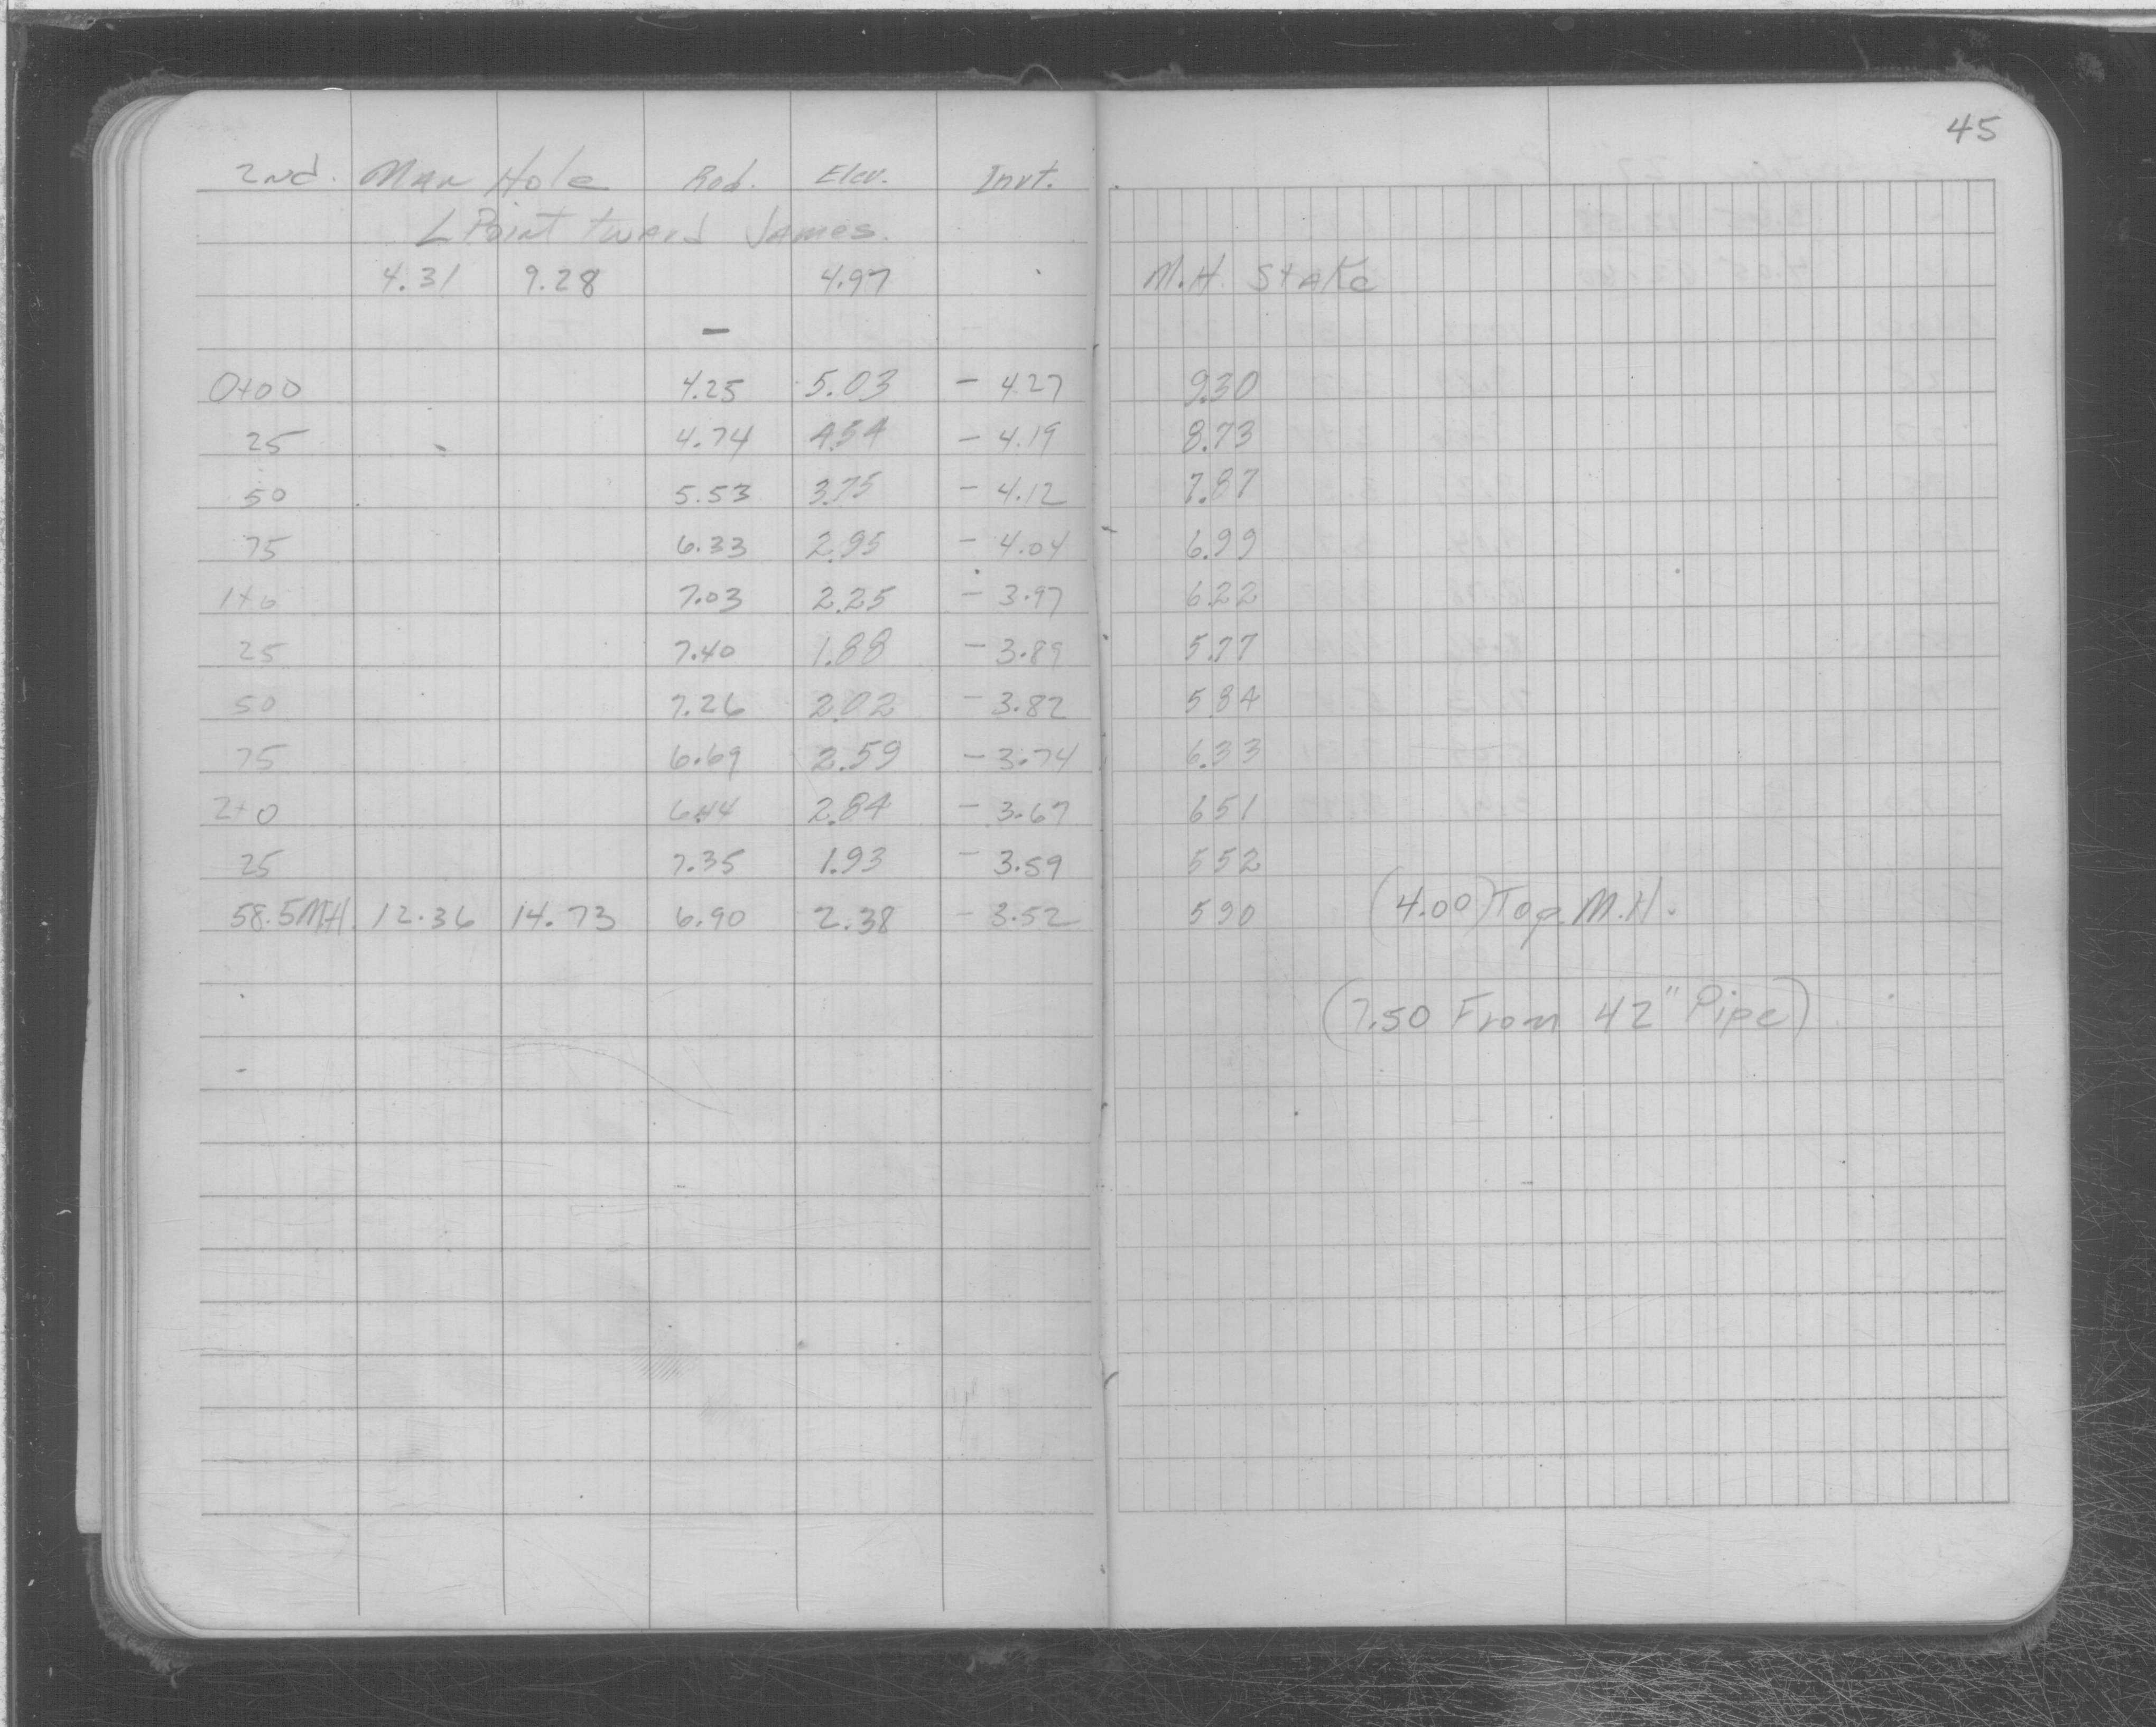 45
2nd. Man Hole Rod. Elev. Invt.
L Point tward James.
4.31 9.28 4.97 M.H. Stake
-
0+00 4.25 5.03 - 4.27 9.30
25 4.74 4.54 - 4.19 8.73
50 5.53 3.75 - 4.12 7.87
75 6.33 2.95 - 4.04 6.99
1+0 7.03 2.25 - 3.97 6.22
25 7.40 1.88 - 3.89 5.77
50 7.26 2.02 - 3.82 5.84
75 6.69 2.59 - 3.74 6.33
2+0 6.44 2.84 - 3.67 6 51
25 7.35 1.93 - 3.59 5 52
58.5 M.H. 12.36 14.73 6.90 2.38 - 3.52 5 90 (4.00) Top M.H.
(7.50 From 42" Pipe)